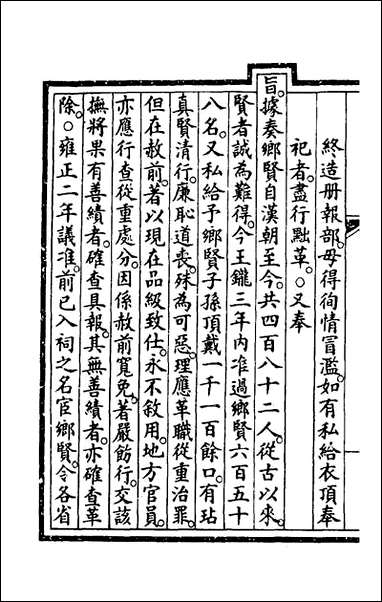 終造册報部。毋得徇情冒濫。如有私給衣頂奉
祀者。盡行黜革。○又奉
旨。據奏鄉賢自漢朝至今。共四百八十二人。從古以來。
賢者誠為難得。今王鑨三年內准過鄉賢六百五十
八名。又私給予鄉賢子孫頂戴一千一百餘口。有玷
真賢清行。廉恥道喪。殊為可惡。理應革職從重治罪。
但在赦前。著以現在品級致仕。永不敘用。地方官員。
亦應行查從重處分。因係赦前寬免。著嚴飭行。交該
撫將果有善績者。確查具報。其無善績者。亦確查革
除。○雍正二年議准。前已入祠之名宦鄉賢。令各省